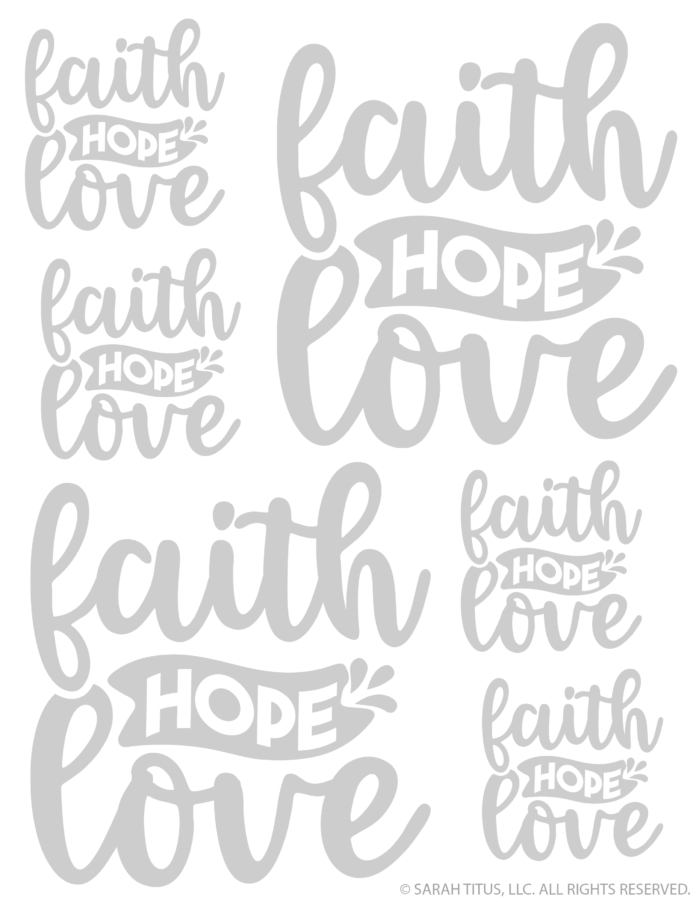 faith
HOPE
love
faith
HOPE
love
faith
HOPE
love
faith
HOPE
love
faith
HOPE
love
faith
HOPE
love
© SARAH TITUS, LLC. ALL RIGHTS RESERVED.